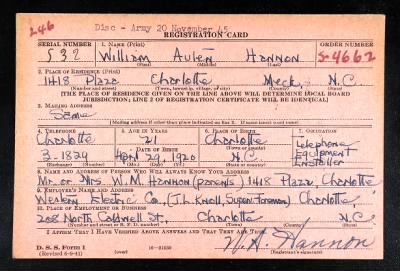 246
Disc - Army 20 November 45
REGISTRATION CARD
SERIAL NUMBER 1. NAME (Print) ORDER NUMBER
532 William Auten Hannon S-4662
(First) (Middle) (Last)
2. PLACE OF RESIDENCE (Print)
1418 Plaza Charlotte Meck. N.C.
(Number and street) (Town, township, village, or city) (County) (State)
[THE PLACE OF RESIDENCE GIVEN ON THE LINE ABOVE WILL DETERMINE LOCAL BOARD
JURISDICTION; LINE 2 OF REGISTRATION CERTIFICATE WILL BE IDENTICAL]
3. MAILING ADDRESS
Same
4. TELEPHONE 5. AGE IN YEARS 6. PLACE OF BIRTH 7. OCCUPATION
Charlotte 21 Charlotte Telephone
DATE OF BIRTH Equipment
3-1829 April 29, 1920 N.C. Installer
8. NAME AND ADDRESS OF PERSON WHO WILL ALWAYS KNOW YOUR ADDRESS
Mr. or Mrs. W.M. Hannon (parents) 1418 Plaza, Charlotte
9. EMPLOYER'S NAME AND ADDRESS
Western Electric Co., (J.L. Knoll, Super. Foreman) Charlotte
10. PLACE OF EMPLOYMENT OR BUSINESS
208 North Caldwell St., Charlotte N.C.
(Number and street or R. F. D. number) (Town) (County) (State)
I AFFIRM THAT I HAVE VERIFIED ABOVE ANSWERS AND THAT THEY ARE TRUE.
D. S. S. Form 1
(Revised 6-9-41) W. A. Hannon